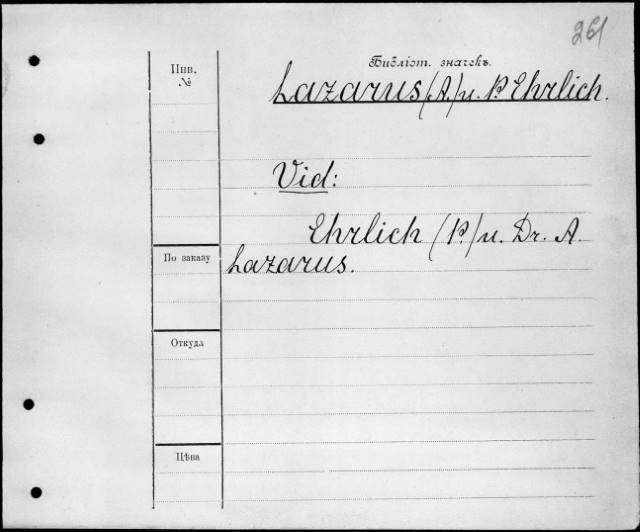 261
Инв.
№
Библіот. значекъ.
Lazarus (A.) u. P. Ehrlich.
Vid:
Ehrlich (P.) u. Dr. A.
По заказу
Lazarus.
Откуда
Цѣна